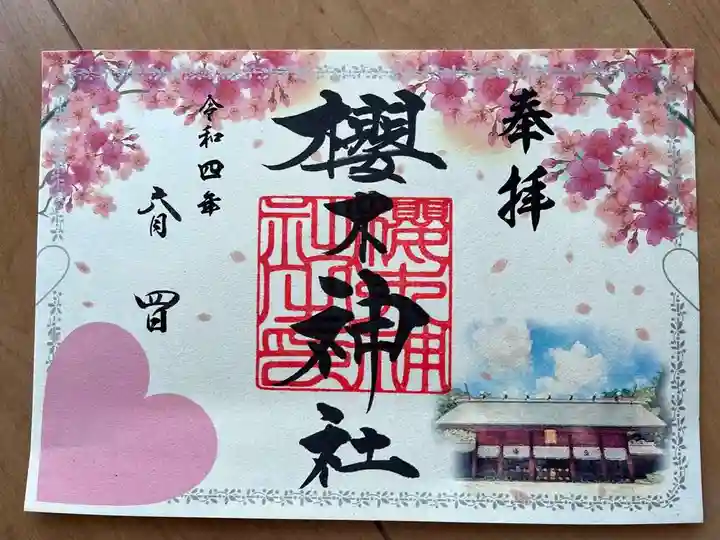 奉拝
櫻木神社
櫻木神社之印
令和四年
六月四日